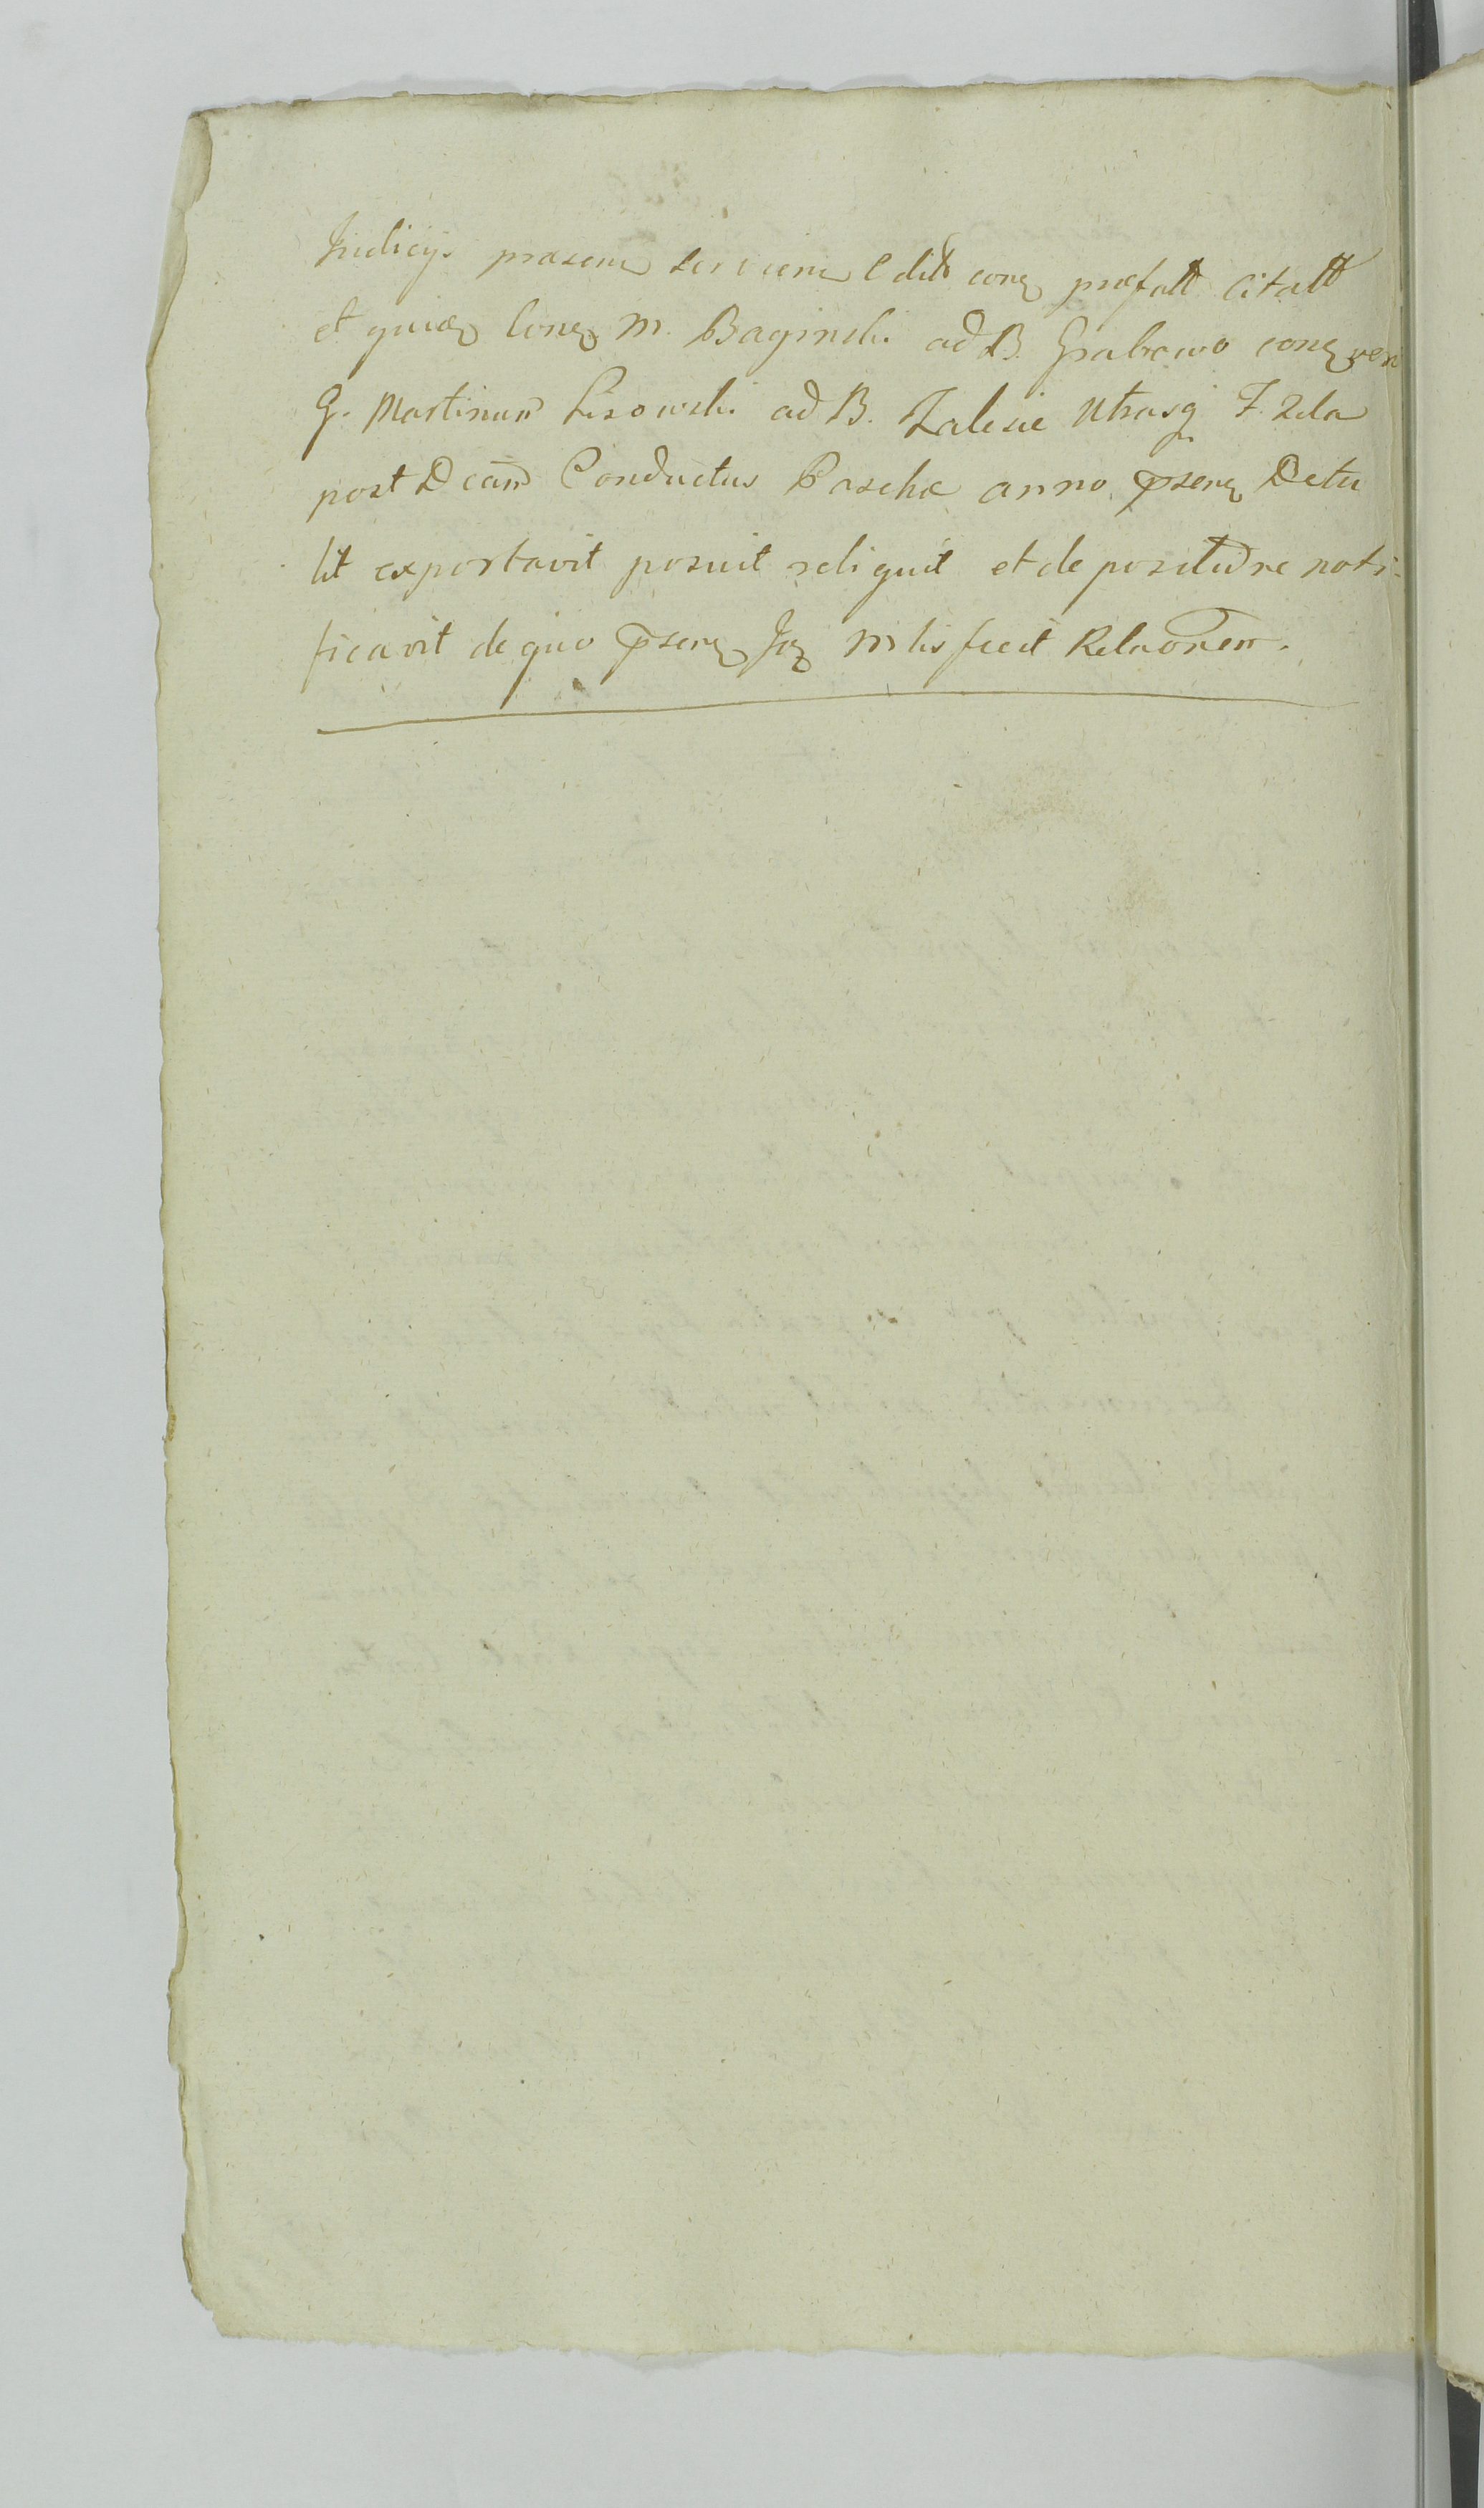 Judicijs praesen servien Edit conq praefatt Citatt
et quidq Conq M. Baginski ad B. Grabowo conq vero
G. Martinum Lisowski ad B. Zalesie utrasq F. 2da
post Dcam Conductus Paschae anno psenq Detu
lit exportavit posuit reliquit et de positione noti-
ficavit de quo psenq Jq Mtis fecit Relaonem.